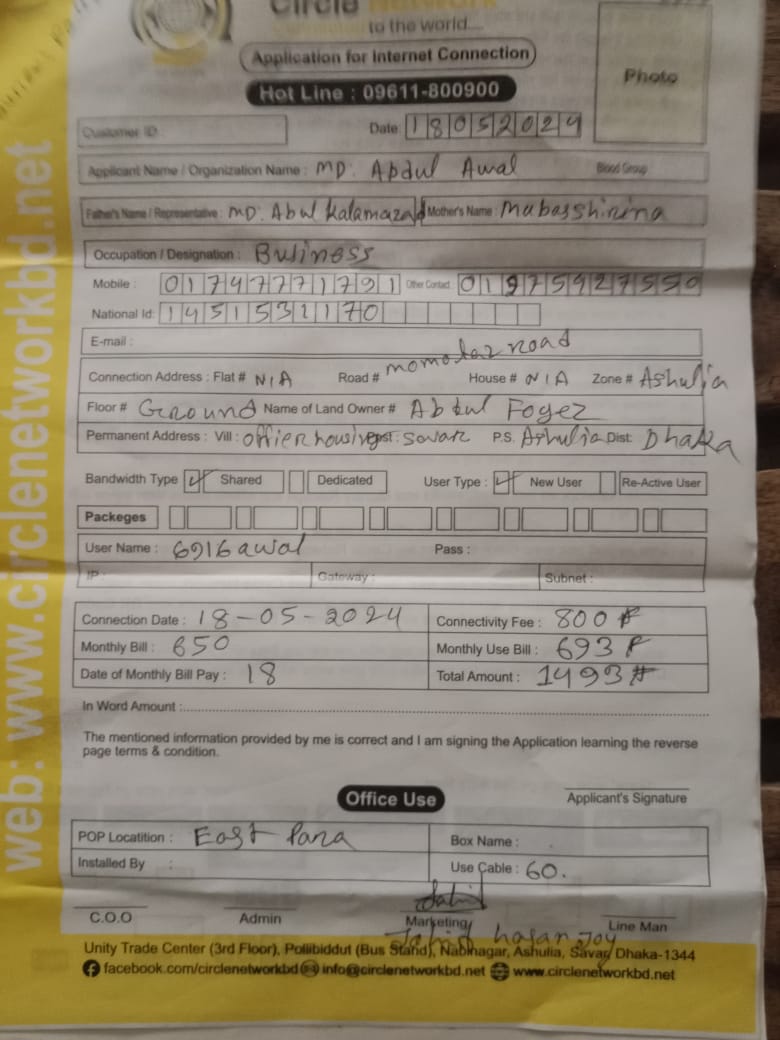 Circle Network
to the world....
Application for Internet Connection
Hot Line : 09611-800900
Photo
Customer ID : Date : 18052024
Applicant Name / Organization Name : MD. Abdul Awal Blood Group
Father's Name / Representative : MD. Abul Kalamazad Mother's Name : Mubasshirina
Occupation / Designation : Business
Mobile : 01747771791 Other Contact : 01975927550
National Id: 1451532170
E-mail :
Connection Address : Flat # N/A Road # momotaz road House # N/A Zone # Ashulia
Floor # Ground Name of Land Owner # Abdul Foyez
Permanent Address : Vill : offier housing Post : Savar P.S. Ashulia Dist: Dhaka
Bandwidth Type Shared Dedicated User Type : New User Re-Active User
Packeges
User Name : 6916awal Pass :
IP : Gateway : Subnet :
Connection Date : 18-05-2024 Connectivity Fee : 800
Monthly Bill : 650 Monthly Use Bill : 693
Date of Monthly Bill Pay : 18 Total Amount : 1493
In Word Amount :
The mentioned information provided by me is correct and I am signing the Application learning the reverse
page terms & condition.
Office Use
Applicant's Signature
POP Locatition : East Para Box Name :
Installed By : Use Cable : 60.
Jahid
C.O.O Admin Marketing Line Man
Jahid hasan Joy
Unity Trade Center (3rd Floor), Pollibiddut (Bus Stand), Nabinagar, Ashulia, Savar, Dhaka-1344
facebook.com/circlenetworkbd info@circlenetworkbd.net www.circlenetworkbd.net
web: www.circlenetworkbd.net